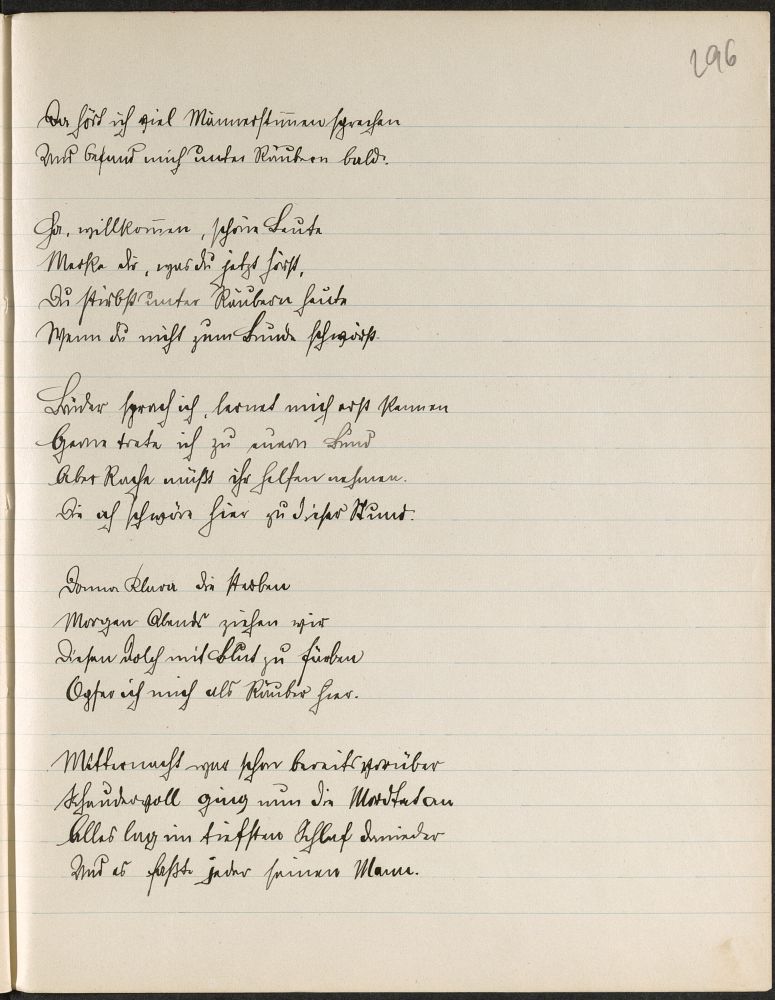 296
Da hört ich viel Männerstimmen sprechen
Und befand mich unter Räubern bald.
Ha, willkommen, schöne Beute
Merke dir, was du jetzt hörst,
Du stirbst unter Räubern heute
Wenn du nicht zum Bunde schwörst.
Brüder sprach ich, lernet mich erst kennen
Gerne trete ich zu euern Bund
Aber Rache müßt ihr helfen nehmen.
Die ich schwöre hier zu dieser Stund.
Donna Klara die sterben
Morgen Abends ziehen wir
Diesen Dolch mit Blut zu färben
Opfer ich mich als Räuber hier.
Mitternacht war schon bereits vorüber
Schaudervoll ging nun die Mordtat an
Alles lag im tiefsten Schlaf danieder
Und es faßte jeder seinen Mann.